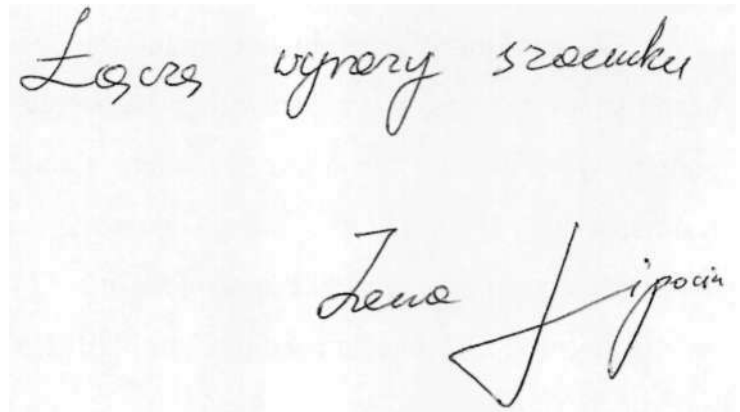 Łączę wyrazy szacunku
Irena Lipocin